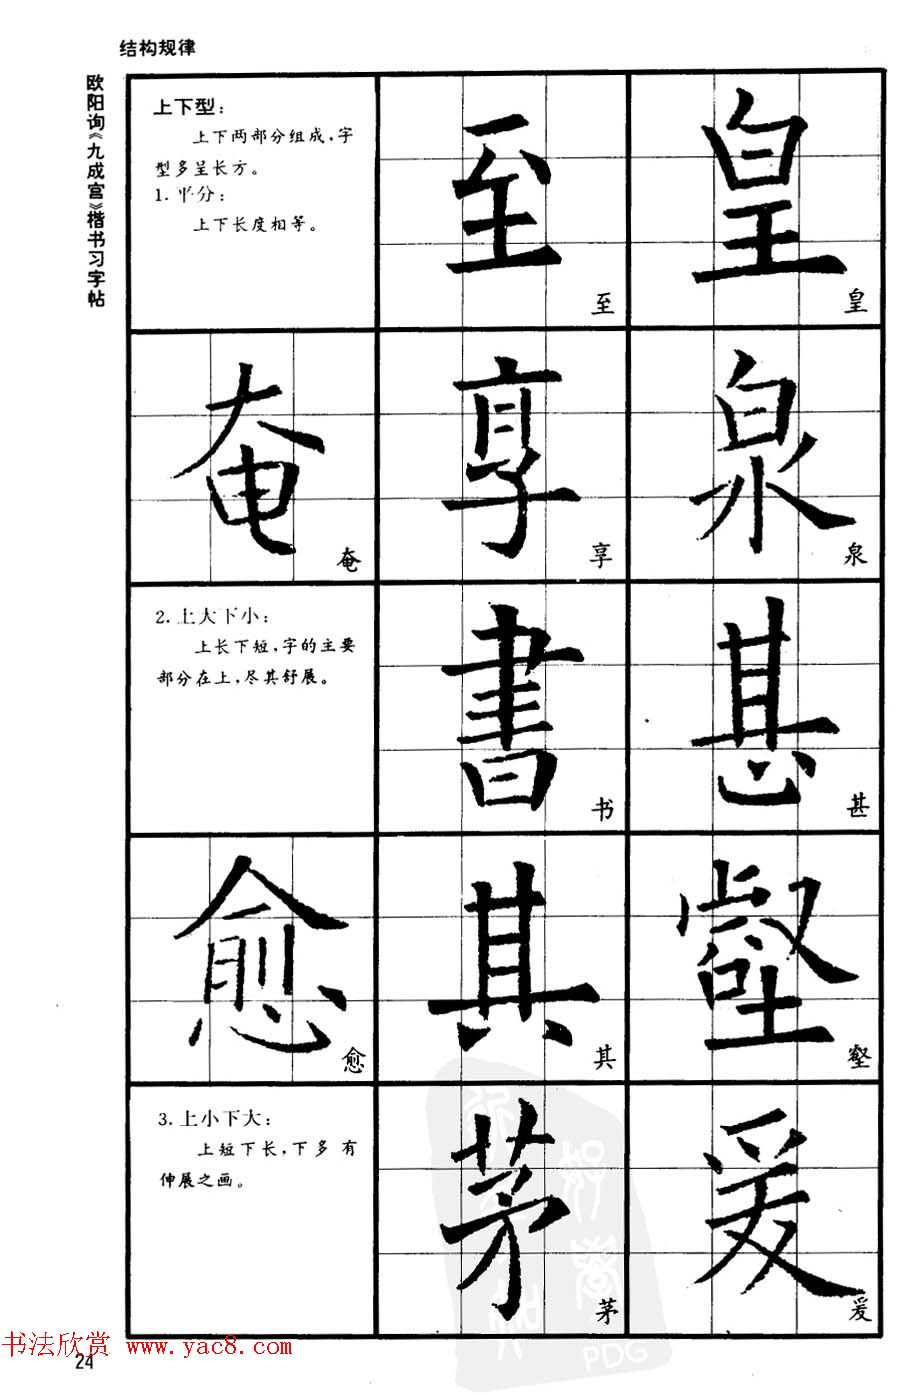 结构规律
欧阳询《九成宫》楷书习字帖
上下型：
上下两部分组成，字
型多呈长方。
1. 平分：
上下长度相等。
至
至
皇
皇
奄
奄
享
享
泉
泉
2. 上大下小：
上长下短，字的主要
部分在上，尽其舒展。
書
书
甚
甚
愈
愈
其
其
壑
3. 上小下大：
上短下长，下多有
伸展之画。
茅
茅
爰
爰
书法欣赏 www.yac8.com
24
PDG